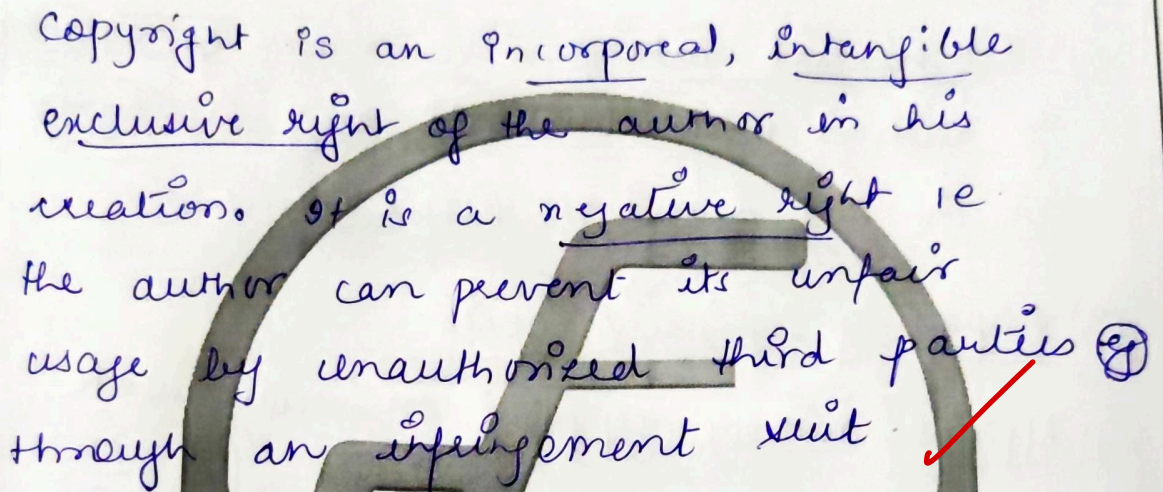 Copyright is an incorporeal, intangible
exclusive right of the author in his
creation. It is a negative right ie
the author can prevent its unfair
usage by unauthorized third parties eg
through an infringement suit